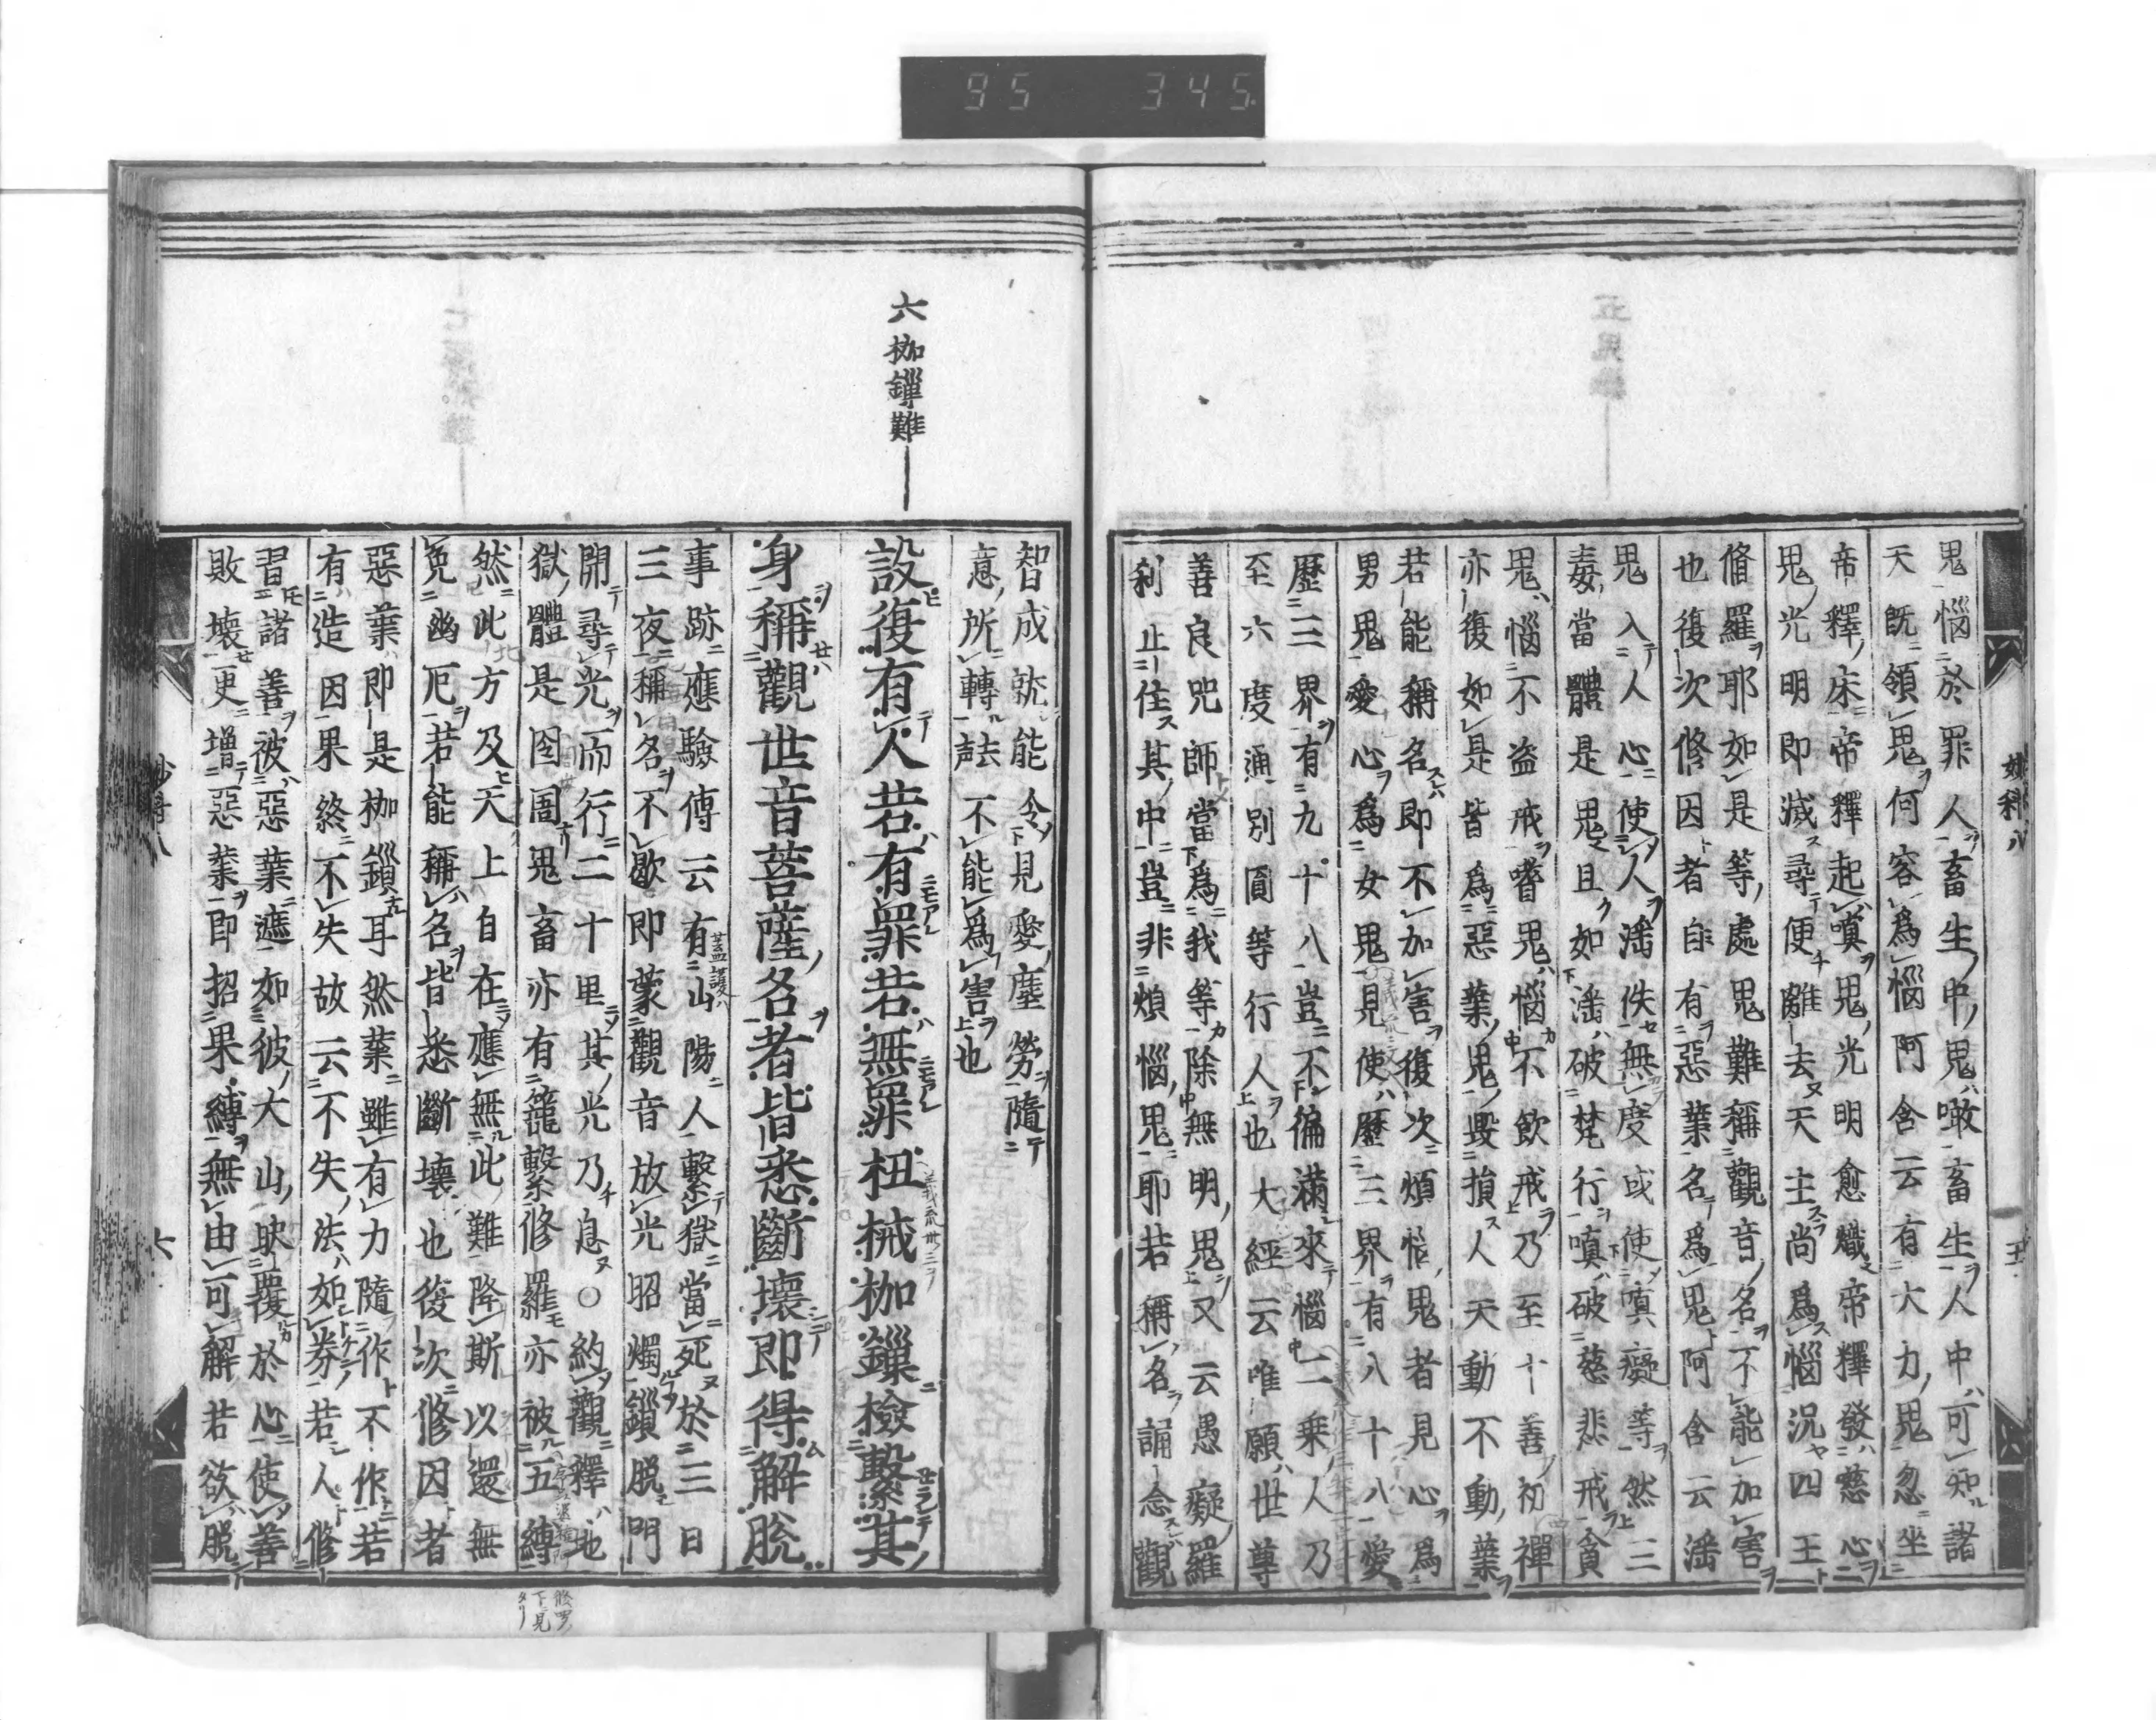 95 345
鬼惱於罪人畜生中鬼噉畜生人中可知諸
天既領鬼何容爲惱阿含云有大力鬼忽坐
帝釋床帝釋起嗔鬼光明愈熾帝釋發慈心
鬼光明即滅尋便離去天主尚爲惱況四王
脩羅耶如是等處鬼難稱觀音名不能加害
也復次修因者自有惡業名爲鬼阿含云婬
鬼入人心使人婬佚無度或使嗔癡等然三
毒當體是鬼且如婬破梵行嗔破慈悲戒貪
鬼惱不盜戒嗜鬼惱不飲戒乃至十善初禪
亦復如是皆爲惡業鬼毀損人天動不動業
若能稱名即不加害復次煩惱鬼者見心爲
男鬼愛心爲女鬼見使歷三界有八十八愛
歷三界有九十八豈不徧滿來惱二乗人乃
至六度通別圓等行人也大經云唯願世尊
善良呪師當爲我等除無明鬼又云愚癡羅
刹止住其中豈非煩惱鬼耶若稱名誦念觀
六枷鏁難
智成就能令見愛塵勞隨
意所轉法不能爲害也
設復有人若有罪若無罪杻械枷鏁檢繫其
身稱觀世音菩薩名者皆悉斷壞即得解脫
事跡應驗傳云有山陽人繫獄當死於三日
三夜稱名不歇即蒙觀音放光昭燭鎖脫門
開尋光而行二十里其光乃息○約觀釋地
獄體是囹圄鬼畜亦有籠繫修羅亦被五縛
然此北方及天上自在應無此難降斯以還無
免幽厄若能稱名皆悉斷壞也復次修因者
惡業即是枷鎖耳然業雖有力隨作不作若
有造因果終不失故云不失法如券若人修
習諸善被惡業遮如彼大山映覆於心使善
敗壞更增惡業即招果縛無由可解若欲脫